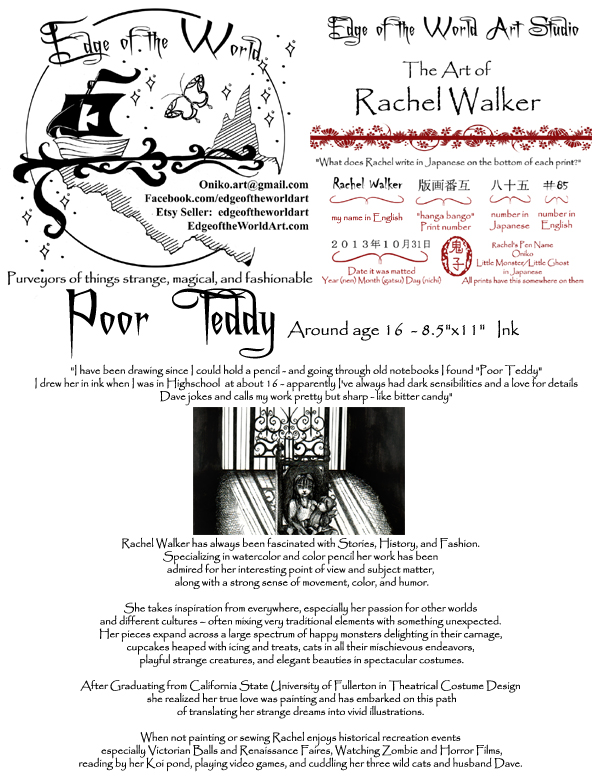 Edge of the World
Oniko.art@gmail.com
Facebook.com/edgeoftheworldart
Etsy Seller: edgeoftheworldart
EdgeoftheWorldArt.com
Purveyors of things strange, magical, and fashionable
Edge of the World Art Studio
The Art of
Rachel Walker
"What does Rachel write in Japanese on the bottom of each print?"
Rachel Walker 版画番互 八十五 #85
my name in English
"hanga bango"
Print number
number in
Japanese
number in
English
2013年10月31日
Date it was matted
Year (nen) Month (gatsu) Day (nichi)
鬼子
Rachel's Pen Name
Oniko
Little Monster/Little Ghost
in Japanese
All prints have this somewhere on them
Poor Teddy Around age 16 - 8.5"x11" Ink
"I have been drawing since I could hold a pencil - and going through old notebooks I found "Poor Teddy"
I drew her in ink when I was in Highschool at about 16 - apparently I've always had dark sensibilities and a love for details
Dave jokes and calls my work pretty but sharp - like bitter candy"
Rachel Walker has always been fascinated with Stories, History, and Fashion.
Specializing in watercolor and color pencil her work has been
admired for her interesting point of view and subject matter,
along with a strong sense of movement, color, and humor.
She takes inspiration from everywhere, especially her passion for other worlds
and different cultures – often mixing very traditional elements with something unexpected.
Her pieces expand across a large spectrum of happy monsters delighting in their carnage,
cupcakes heaped with icing and treats, cats in all their mischievous endeavors,
playful strange creatures, and elegant beauties in spectacular costumes.
After Graduating from California State University of Fullerton in Theatrical Costume Design
she realized her true love was painting and has embarked on this path
of translating her strange dreams into vivid illustrations.
When not painting or sewing Rachel enjoys historical recreation events
especially Victorian Balls and Renaissance Faires, Watching Zombie and Horror Films,
reading by her Koi pond, playing video games, and cuddling her three wild cats and husband Dave.